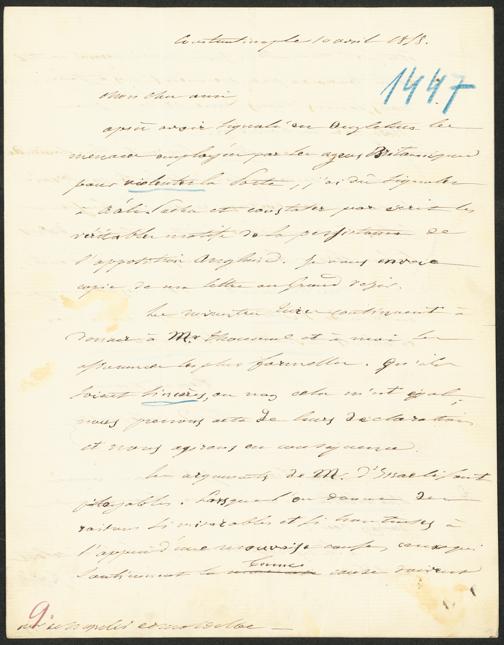 Constantinople 10 avril 1858.
1447
Mon cher ami
après avoir signalé en Angleterre les
menaces employées par les agens Britanniques
pour violenter la Porte, j'ai dû signaler
à Aali Pacha et constater par écrit les
véritables motifs de la persistance de
l'opposition Anglaise. Je vous envoie
copie de ma lettre au Grand Vizir.
Les ministres Turcs continuent à
donner à Mr Thouvenel et à moi les
assurances les plus formelles. Qu'elles
soient sincères, ou non, cela m'est égal,
nous prenons acte de leurs déclarations
et nous agirons en conséquence.
Les arguments de M. d'Israeli sont
pitoyables. Lorsque l'on donne des
raisons si misérables et si honteuses à
l'appui d'une mauvaise cause, ceux qui
soutiennent la bonne cause doivent
9